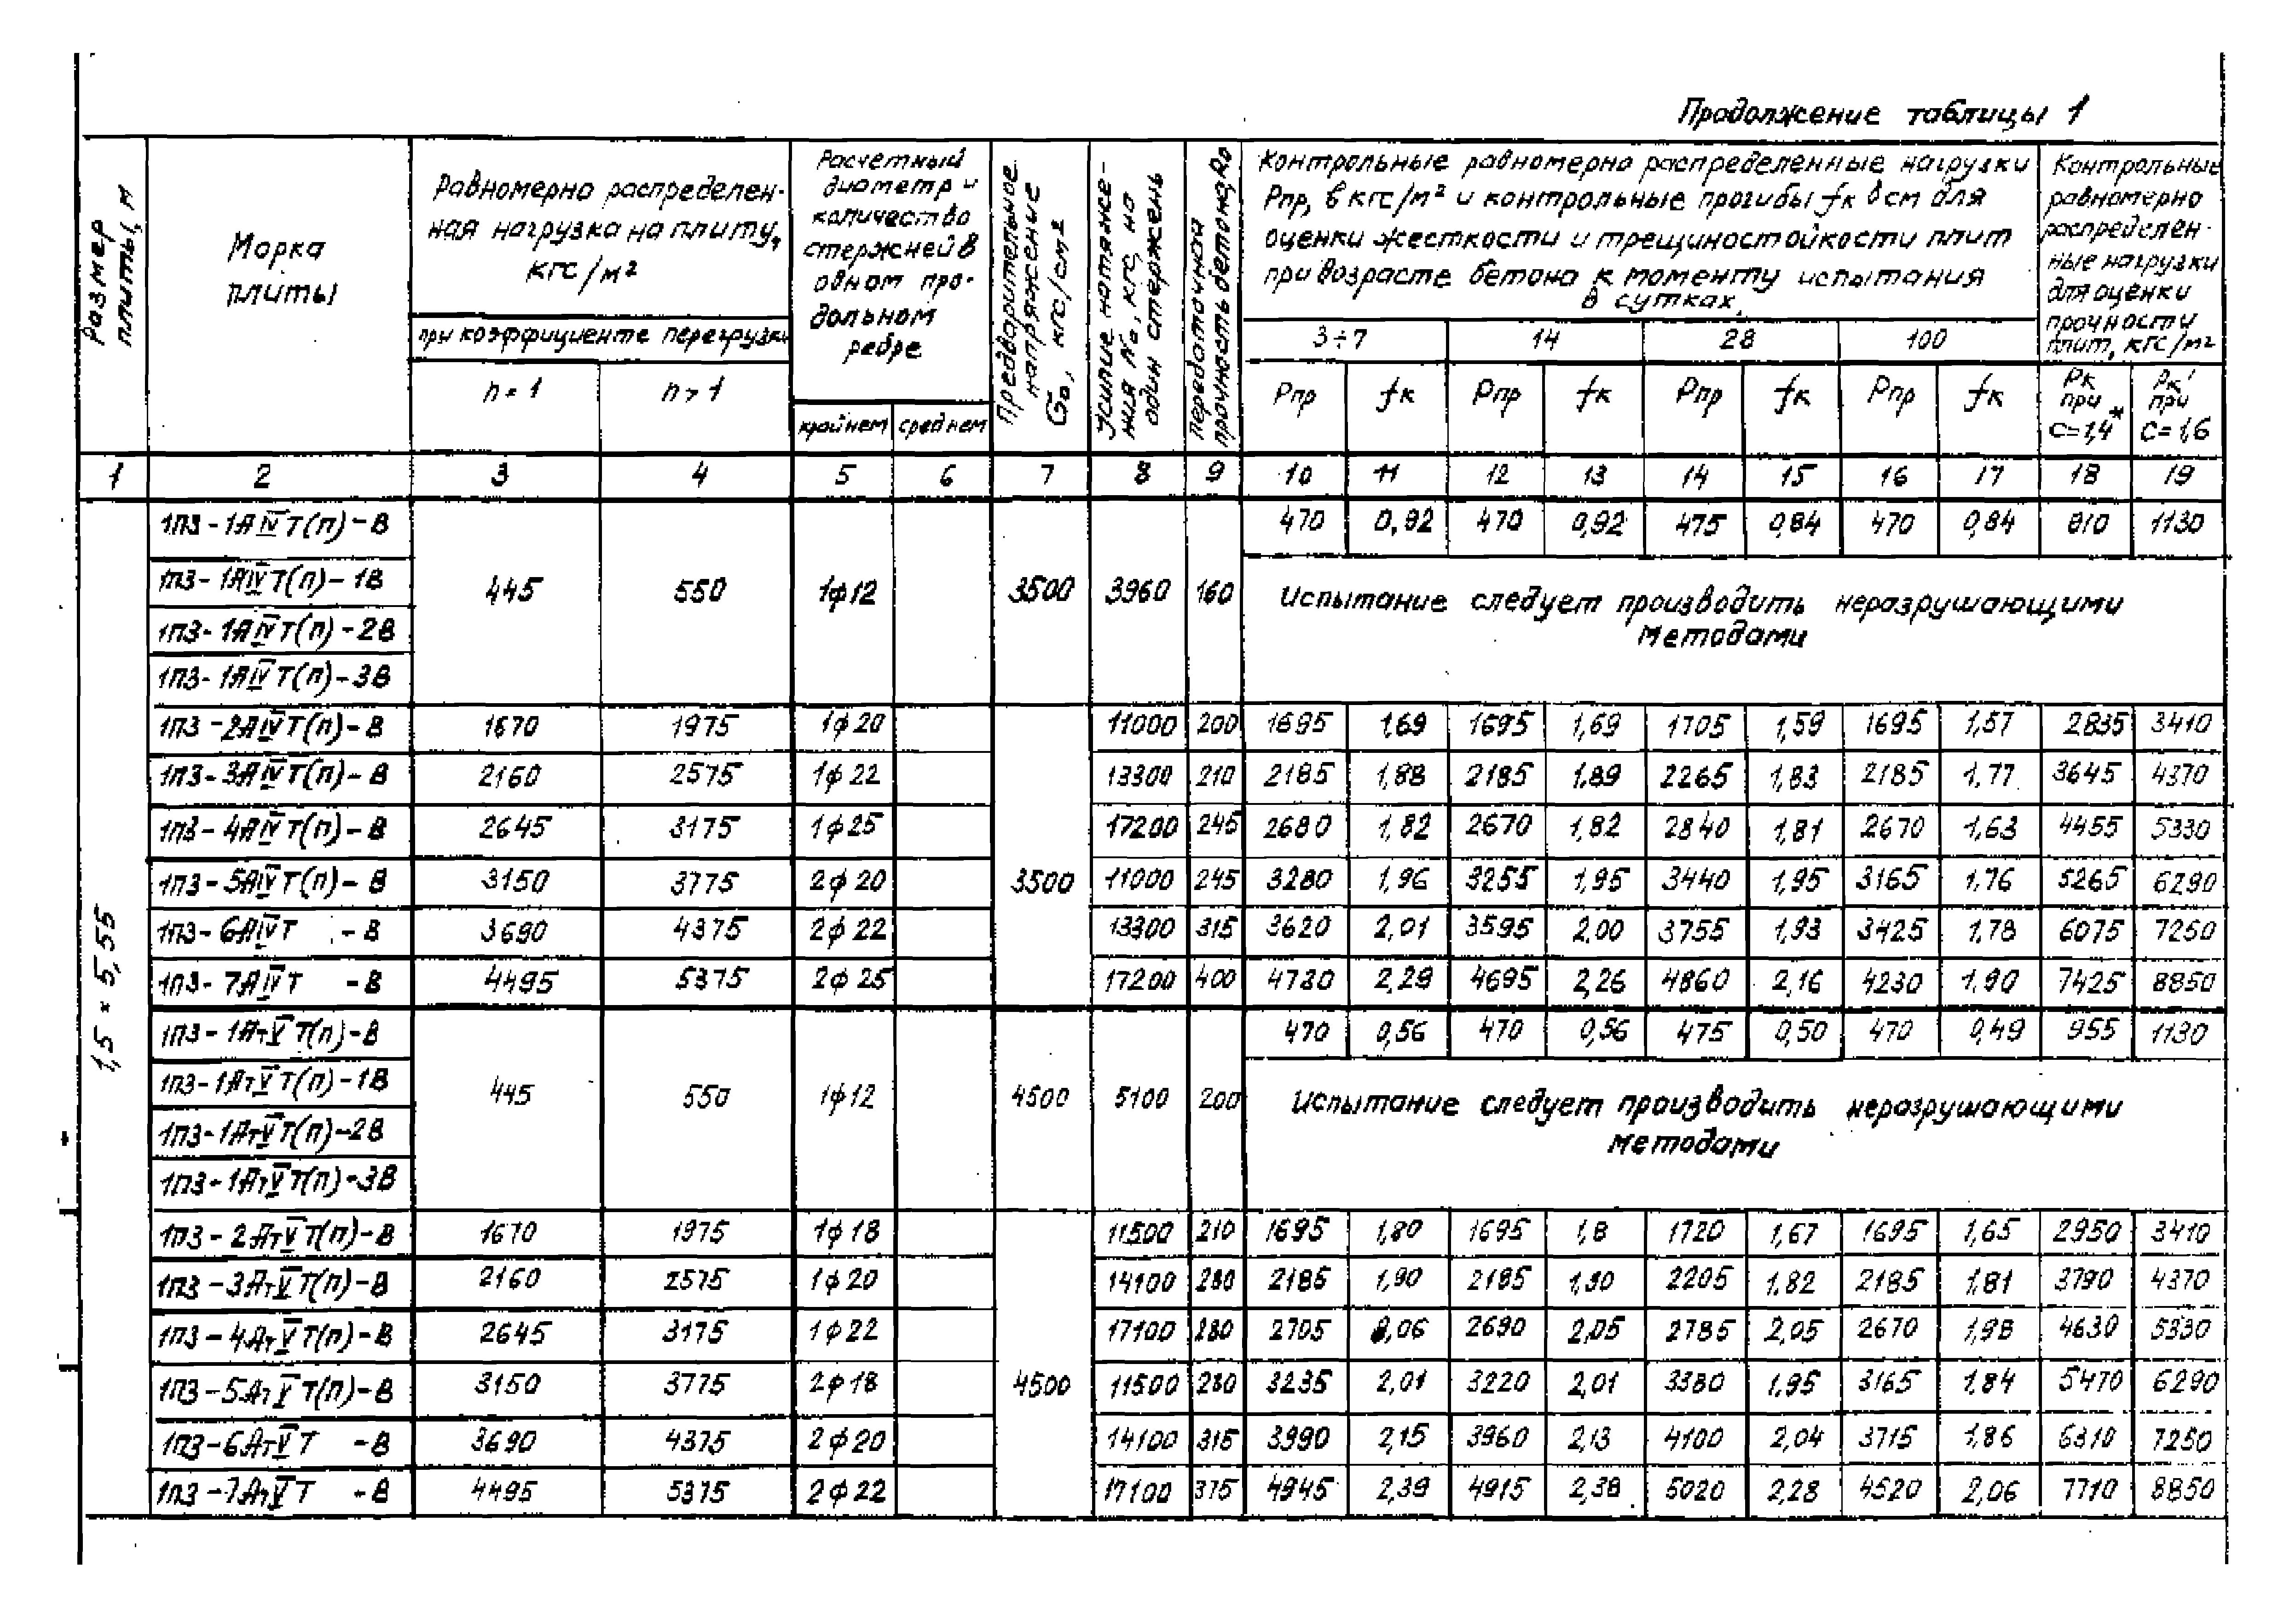 Продолжение таблицы 1
Размер плиты, м
Марка плиты
Равномерно распределен-
ная нагрузка на плиту,
кгс/м²
при коэффициенте перегрузки
n = 1 n > 1
Расчетный
диаметр и
количество
стержней в
одном про-
дольном
ребре
крайнем среднем
Предварительное напряжение σ₀, кгс/см²
Усилие натяже-
ния N₀, кгс, на
один стержень
Передаточная прочность бетона, R₀
Контрольные равномерно распределенные нагрузки
Рпр, в кгс/м² и контрольные прогибы fк в см для
оценки жесткости и трещиностойкости плит
при возрасте бетона к моменту испытания
в сутках,
3÷7 14 28 100
Рпр fк Рпр fк Рпр fк Рпр fк
Контрольные
равномерно
распределен-
ные нагрузки
для оценки
прочности
плит, кгс/м²
Рк при С=1,4* Рк' при С=1,6
1 2 3 4 5 6 7 8 9 10 11 12 13 14 15 16 17 18 19
1,5 × 5,55
1П3-1АIVТ(п)-В 470 0,92 470 0,92 475 0,84 470 0,84 910 1130
1П3-1АIVТ(п)-1В 445 550 1ф12 3500 3960 160 Испытание следует производить неразрушающими
1П3-1АIVТ(п)-2В методами
1П3-1АIVТ(п)-3В
1П3-2АIVТ(п)-В 1670 1975 1ф20 11000 200 1695 1,69 1695 1,69 1705 1,59 1695 1,57 2835 3410
1П3-3АIVТ(п)-В 2160 2575 1ф22 13300 210 2185 1,88 2185 1,89 2265 1,83 2185 1,77 3645 4370
1П3-4АIVТ(п)-В 2645 3175 1ф25 17200 245 2680 1,82 2670 1,82 2840 1,81 2670 1,63 4455 5330
1П3-5АIVТ(п)-В 3150 3775 2ф20 3500 11000 245 3280 1,96 3255 1,95 3440 1,95 3165 1,76 5265 6290
1П3-6АIVТ -В 3690 4375 2ф22 13300 315 3620 2,01 3595 2,00 3755 1,93 3425 1,78 6075 7250
1П3-7АIVТ -В 4495 5375 2ф25 17200 400 4730 2,29 4695 2,26 4860 2,16 4230 1,90 7425 8850
1П3-1АтVТ(п)-В 470 0,56 470 0,56 475 0,50 470 0,49 955 1130
1П3-1АтVТ(п)-1В 445 550 1ф12 4500 5100 200 Испытание следует производить неразрушающими
1П3-1АтVТ(п)-2В методами
1П3-1АтVТ(п)-3В
1П3-2АтVТ(п)-В 1670 1975 1ф18 11500 210 1695 1,80 1695 1,8 1720 1,67 1695 1,65 2950 3410
1П3-3АтVТ(п)-В 2160 2575 1ф20 14100 280 2185 1,90 2185 1,90 2205 1,82 2185 1,81 3790 4370
1П3-4АтVТ(п)-В 2645 3175 1ф22 17100 280 2705 2,06 2690 2,05 2785 2,05 2670 1,98 4630 5330
1П3-5АтVТ(п)-В 3150 3775 2ф18 4500 11500 280 3235 2,01 3220 2,01 3380 1,95 3165 1,84 5470 6290
1П3-6АтVТ -В 3690 4375 2ф20 14100 315 3990 2,15 3960 2,13 4100 2,04 3715 1,86 6310 7250
1П3-7АтVТ -В 4495 5375 2ф22 17100 375 4945 2,39 4915 2,38 5020 2,28 4520 2,06 7710 8850